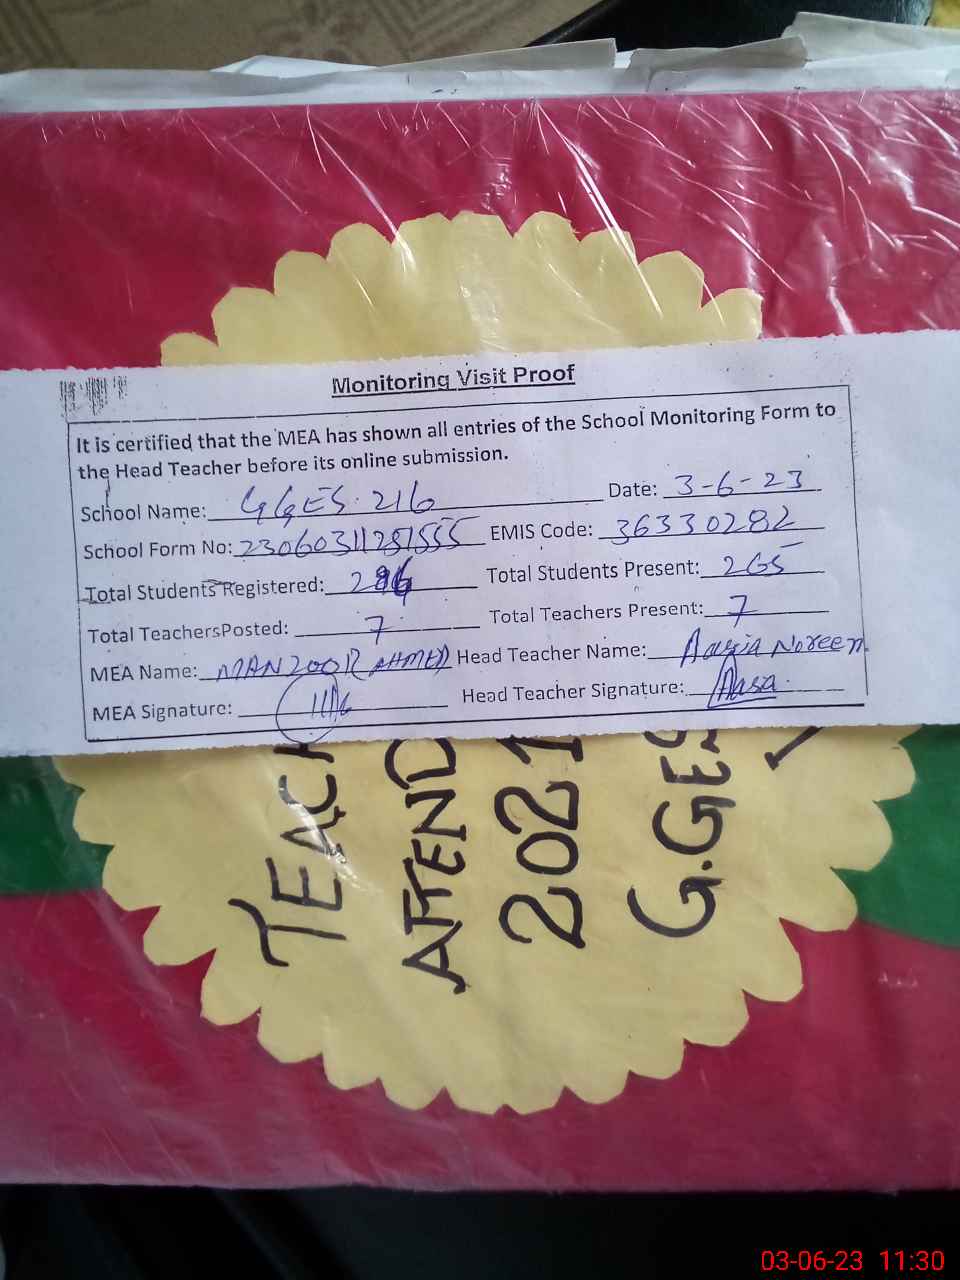 Monitoring Visit Proof
It is certified that the MEA has shown all entries of the School Monitoring Form to
the Head Teacher before its online submission.
School Name: GGES. 216 Date: 3-6-23
School Form No: 23060311281555 EMIS Code: 36330282
Total Students Registered: Total Students Present: 265
Total TeachersPosted: 7 Total Teachers Present: 7
MEA Name: MANZOOR AHMED Head Teacher Name: Noreen.
MEA Signature: Head Teacher Signature:
TEACH
ATTEND
2021
G.GES
03-06-23 11:30